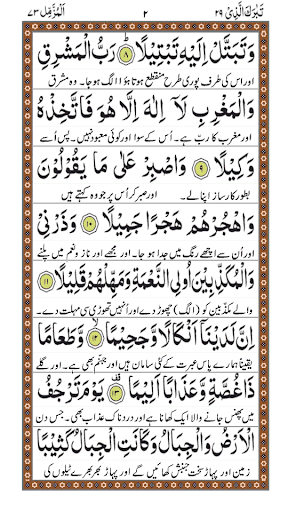 تَبٰرَكَ الَّذِیْ ۲۹ ۲ اَلْمُزَّمِّل ۷۳
وَتَبَتَّلْ اِلَیْهِ تَبْتِیْلًا ۸ رَبُّ الْمَشْرِقِ
اور اس کی طرف پوری طرح منقطع ہوتا ہوا الگ ہوجا۔ وہ مشرق
وَالْمَغْرِبِ لَاۤ اِلٰهَ اِلَّا هُوَ فَاتَّخِذْهُ
اور مغرب کا ربّ ہے۔ اُس کے سوا اور کوئی معبود نہیں۔ پس اُسے
وَكِیْلًا ۹ وَاصْبِرْ عَلٰی مَا یَقُوْلُوْنَ
بطور کارساز اپنا لے۔ اور صبر کر اُس پر جو وہ کہتے ہیں
وَاهْجُرْهُمْ هَجْرًا جَمِیْلًا ۱۰ وَذَرْنِیْ
اور اُن سے اچھے رنگ میں جدا ہو جا۔ اور مجھے اور ناز و نعم میں پلنے
وَالْمُكَذِّبِیْنَ اُولِی النَّعْمَةِ وَمَهِّلْهُمْ قَلِیْلًا ۱۱
والے مکذبین کو (الگ) چھوڑ دے اور اُنہیں تھوڑی سی مہلت دے۔
اِنَّ لَدَیْنَاۤ اَنْكَالًا وَّجَحِیْمًا ۱۲ وَّطَعَامًا
یقیناً ہمارے پاس عبرت کے کئی سامان ہیں اور جہنم بھی ہے۔ اور گلے
ذَا غُصَّةٍ وَّعَذَابًا اَلِیْمًا ۱۳ یَوْمَ تَرْجُفُ
میں پھنس جانے والا ایک کھانا ہے اور دردناک عذاب بھی۔ جس دن
الْاَرْضُ وَالْجِبَالُ وَكَانَتِ الْجِبَالُ كَثِیْبًا
زمین اور پہاڑ سخت جنبش کھائیں گے اور پہاڑ بھربھرے ٹیلوں کی